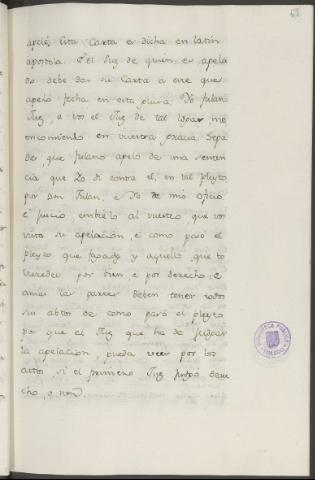 apelò, Esta Carta es dicha en latin
apostola. E el Juez de quien es apela
do debe dar su Carta a ese que
apelò fecha en esta guisa. Yo fulano
Juez, a vos el Juez de tal lugar, me
encomiendo en vuestra gracia. Sepa
des, que fulano apelò de una senten
cia que Yo di contra el, en tal pleyto
por Don Fulan, e Yo de mio oficio,
è juicio, embielo al vuestro, que vos
visto su apelación, è como parò el
pleyto que fagades y aquello que to
vieredes por bien è por derecho: e
amas las partes deben tener todos
su abtos de como parò el pleyto
por que el Juez que ha de Juzgar
la apelación, pueda veer por los
actos, si el primero Juez juzgò dere
cho, o non